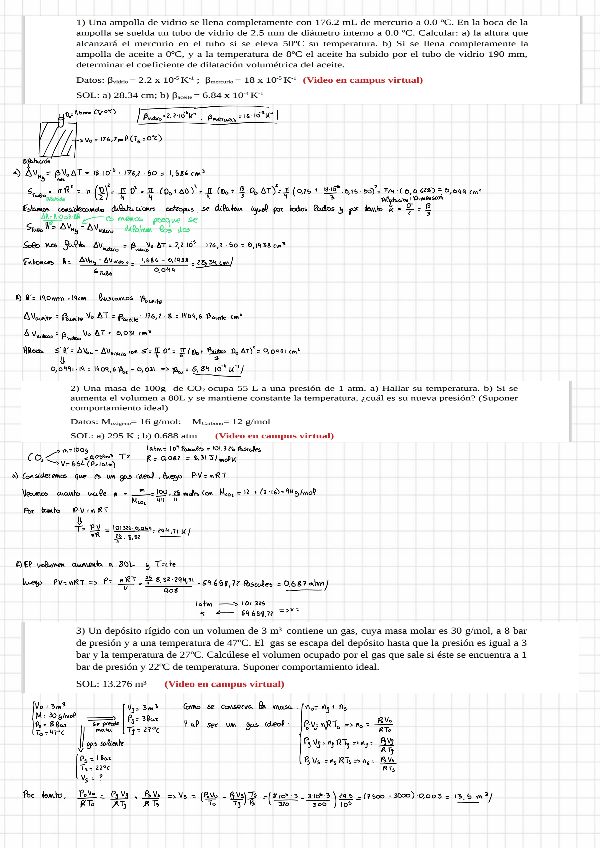 1) Una ampolla de vidrio se llena completamente con 176.2 mL de mercurio a 0.0 ºC. En la boca de la
ampolla se suelda un tubo de vidrio de 2.5 mm de diámetro interno a 0.0 ºC. Calcular: a) la altura que
alcanzará el mercurio en el tubo si se eleva 50ºC su temperatura. b) Si se llena completamente la
ampolla de aceite a 0ºC, y a la temperatura de 8ºC el aceite ha subido por el tubo de vidrio 190 mm,
determinar el coeficiente de dilatación volumétrica del aceite.
Datos: βvidrio = 2.2 x 10-5 K-1 ; βmercurio = 18 x 10-5 K-1 (Video en campus virtual)
SOL: a) 28.34 cm; b) βaceite = 6.84 x 10-4 K-1
V0 = 176,2 ml (T0 = 0ºC)
a) ΔVHg = β V0 ΔT = 18·10-5 · 176,2 · 50 = 1,586 cm³
Estamos considerando dilataciones isótropas se dilatan igual por todos lados y por tanto
es menos porque se
dilatan los dos
Solo nos falta ΔVvidrio = βvidrio V0 ΔT = 2,2·10-5 · 176,2 · 50 = 0,1938 cm³
Entonces h = ΔVHg - ΔVvidrio / Stubo = 1,586 - 0,1938 / 0,049 = 28,34 cm
b) h' = 190mm = 19cm buscamos βaceite
ΔVaceite = βaceite V0 ΔT = βaceite · 176,2 · 8 = 1409,6 βaceite cm³
ΔVvidrio = βvidrio V0 ΔT = 0,031 cm³
0,0491 · 19 = 1409,6 βac - 0,031 => βac = 6,84·10-4 K-1
2) Una masa de 100g de CO2 ocupa 55 L a una presión de 1 atm. a) Hallar su temperatura. b) Si se
aumenta el volumen a 80L y se mantiene constante la temperatura, ¿cuál es su nueva presión? (Suponer
comportamiento ideal)
Datos: Moxígeno= 16 g/mol; Mcarbono= 12 g/mol
SOL: a) 295 K ; b) 0.688 atm (Video en campus virtual)
CO2 m=100g T=
a) Consideremos que es un gas ideal, luego PV=nRT
Veamos cuanto vale n = m/MCO2 = 100/44 = 25/11 moles con MCO2 = 12 + (2·16) = 44 g/mol
Por tanto PV=nRT
b) El volumen aumenta a 80L y T=cte
luego PV=nRT => P = nRT/V = 69658,72 Pascales = 0,687 atm
1atm → 101325
x ← 69658,72 => x=
3) Un depósito rígido con un volumen de 3 m³ contiene un gas, cuya masa molar es 30 g/mol, a 8 bar
de presión y a una temperatura de 47ºC. El gas se escapa del depósito hasta que la presión es igual a 3
bar y la temperatura de 27ºC. Calcúlese el volumen ocupado por el gas que sale si éste se encuentra a 1
bar de presión y 22ºC de temperatura. Suponer comportamiento ideal.
SOL: 13.276 m³ (Video en campus virtual)
V0 = 3m³
M = 30g/mol
P0 = 8Bar
T0 = 47ºC
Se pierde
masa
Vf = 3m³
Pf = 3Bar
Tf = 27ºC
gas saliente
Ps = 1Bar
Ts = 22ºC
Vs = ?
Como se conserva la masa. n0 = nf + ns
Y al ser un gas ideal. P0V0 = n0RT0 => n0 = P0V0/RT0
PfVf = nfRTf => nf = PfVf/RTf
PsVs = nsRTs => ns = PsVs/RTs
Por tanto, P0V0/RT0 = PfVf/RTf + PsVs/RTs => Vs = (P0V0/T0 - PfVf/Tf) Ts/Ps